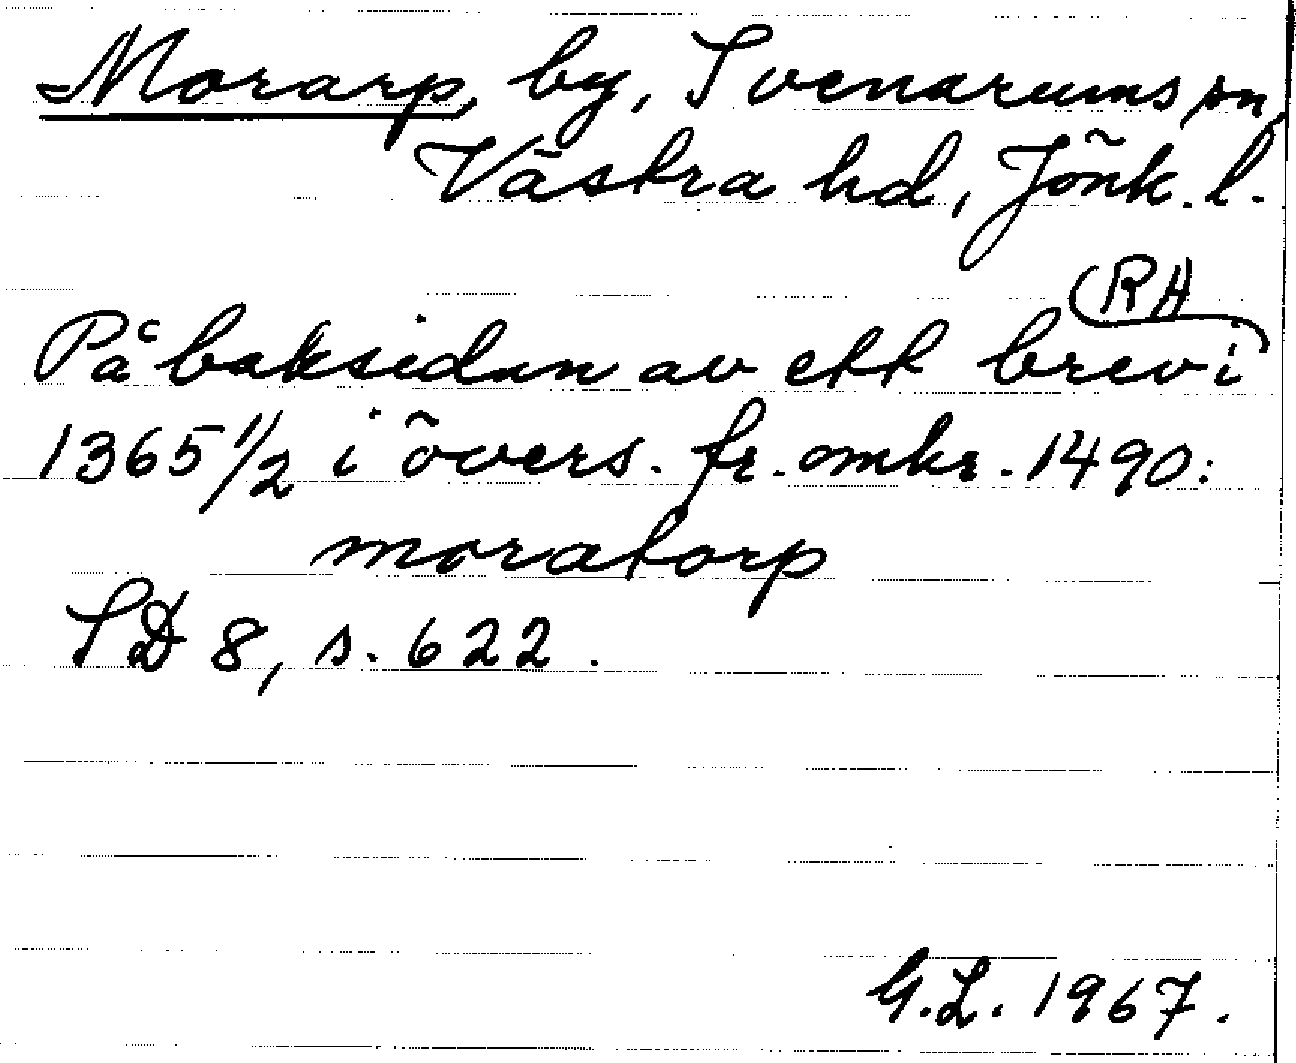 Morarp, by, Svenarums sn,
Västra hd, Jönk. l.
(RA)
På baksidan av ett brev i
1365 1/2 i övers. fr. omkr. 1490:
moratorp
SD 8, s. 622.
G.L. 1967.